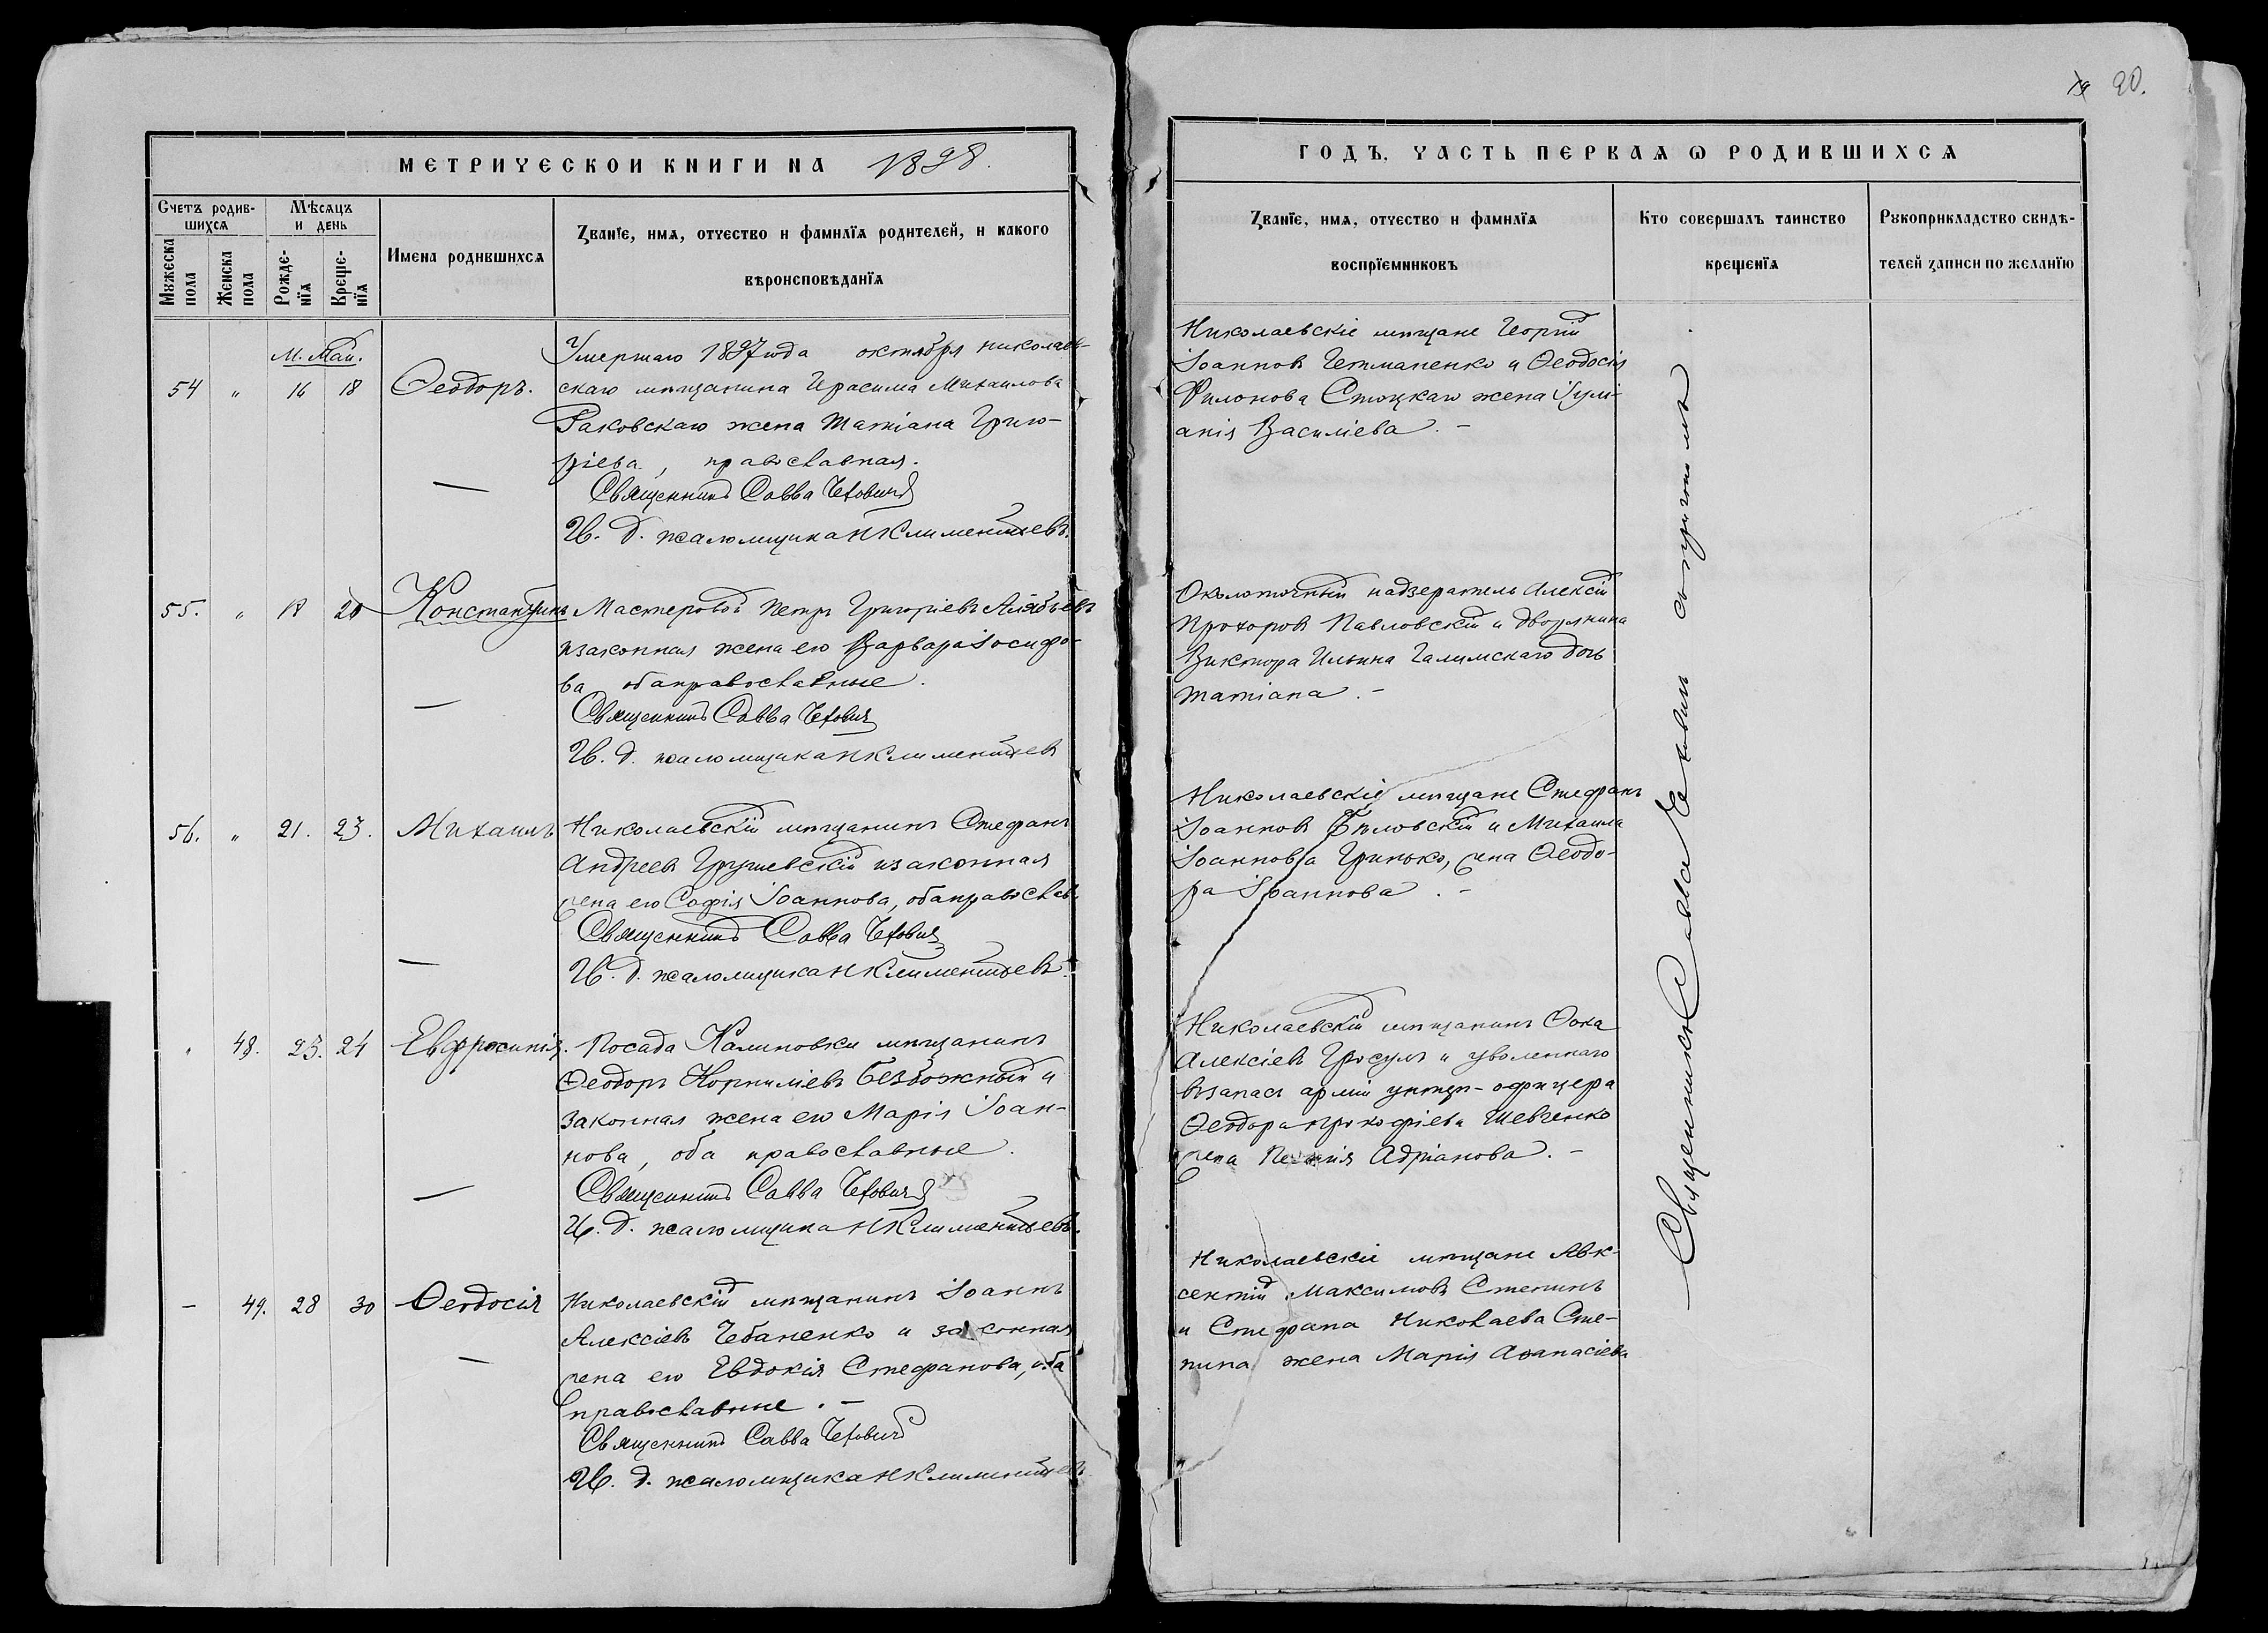 МЕТРИЧЕСКОИ КНИГИ НА 1898.
Счетъ родив-
шихся
Мужеска пола
Женска пола
Мѣсяцъ
и день
Рожде-
нїя
Креще-
нїя
Имена родившихся
Званїе, имя, отчество и фамилїя родителей, и какого
вѣроисповѣданїя
М. Май.
54 " 16 18 Ѳеодоръ.
Умершаго 1897 года октября николаев-
скаго мѣщанина Герасима Михаилова
Раковскаго жена Татіана Григо-
ріева, православная.
Священникъ Савва
И. д. псаломщика Н Климентьевъ.
55. " 18 20 Константинъ
Мастеровой Петръ Григоріевъ Алябьевъ
и законная жена его Варвара Іосифо-
ва оба православные.
Священникъ Савва
И. д. псаломщика Н Климентьевъ
56. " 21. 23. Михаилъ
Николаевскій мѣщанинъ Стефанъ
Андреевъ Грушевскій и законная
жена его Софія Іоаннова, оба православ.
Священникъ Савва
И. д. псаломщика Н Климентьевъ.
" 48. 23. 24 Евфросинія.
Посада Калиновки мѣщанинъ
Ѳеодоръ Корниліевъ Безбожный и
законная жена его Марія Іоан-
нова, оба православные.
Священникъ Савва
И. д. псаломщика Н Климентьевъ.
– 49. 28 30 Ѳеодосія
Николаевскій мѣщанинъ Іоаннъ
Алексіевъ Чебаненко и законная
жена его Евдокія Стефанова, оба
православные. –
Священникъ Савва
И. д. псаломщика Н Климентьевъ
20.
ГОДЪ, ЧАСТЬ ПЕРВАЯ Ѡ РОДИВШИХСЯ
Званїе, имя, отчество и фамилїя
воспрїемниковъ
Кто совершалъ таинство
крещенїя
Рукоприкладство свидѣ-
телей записи по желанїю
Николаевскіе мѣщане Георгій
Іоанновъ Гетманенко и Ѳеодосія
Филонова Стоцкаго жена Іулі-
анія Василіева. –
Околоточный надзератель Алексій
Прохоровъ Павловскій и дворянина
Виктора Ильина Галимскаго дочь
Татіана. –
Николаевскіе мѣщане Стефанъ
Іоанновъ Бѣловскій и Михаила
Іоаннова Гринько, жена Ѳеодо-
ра Іоаннова. –
Николаевскій мѣщанинъ Ѳока
Алексіевъ Гросулъ и уволеннаго
въ запасъ арміи унтеръ-офицера
Ѳеодора Прокофіева Шевченко
жена Адріанова. –
Николаевскіе мѣщане Авк-
сентій Максимовъ Степинъ
и Стефана Николаева Сте-
пина жена Марія Аѳанасіева
Священникъ Савва